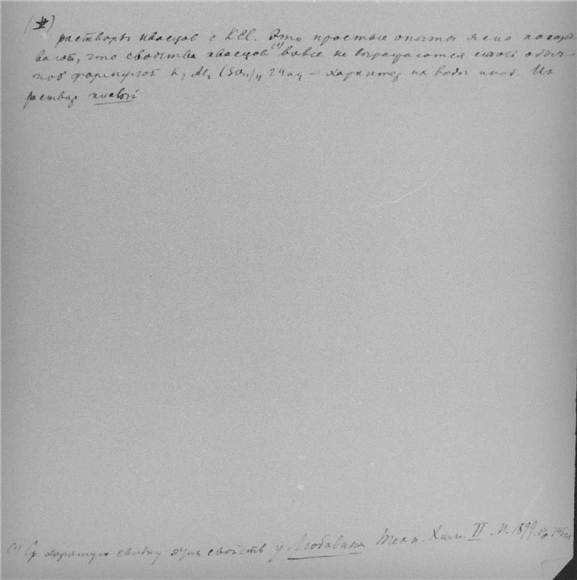 растворы квасцов с KCl. Эти простые опыты ясно показы-
вают, что свойства квасцов (*) вовсе не выражаются этой обыч-
ной формулой K2 Al2 (SO4)4 24 aq – характер их воды иной. Их
раствор кислый
(*) Ср. хорошую сводку этих свойств у Любавина Техн. Хим. II. М. 1899.